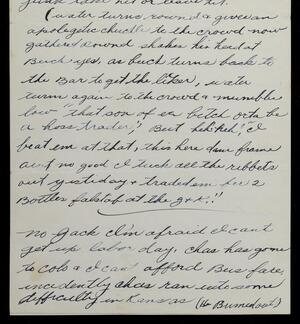 take him or leave it.
(water turns, round & gives an
apologetic chuckle to the crowd now
gathered round shakes his head at
Buch yes, as buch turns back to
the Bar to get the liker, water
turns again to the crowd & mumbles
low "that son of en bitch orta be
a hoss trader." But heh heh," I
beat em at that, this here dam frame
aint no good I tuck all the ribbets
out yistiday & traded em for 2
Bottles falstaf at the g & k."
no Jack I'm afraid I cant
get up labor day, chas has gone
to colo & I can't afford Bus fare,
incidently chas ran into some
difficulty in Kansas (He Burned out)